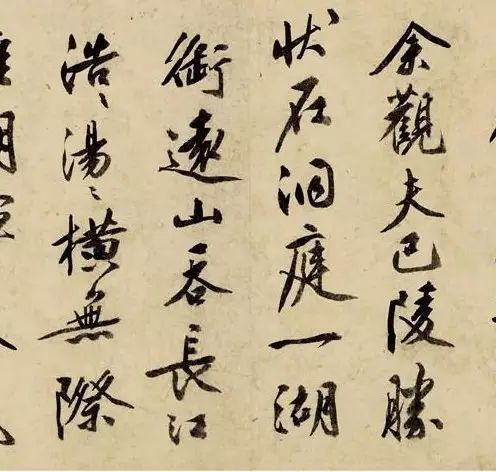 余觀夫巴陵勝
狀在洞庭一湖
銜遠山吞長江
浩〻湯〻橫無際